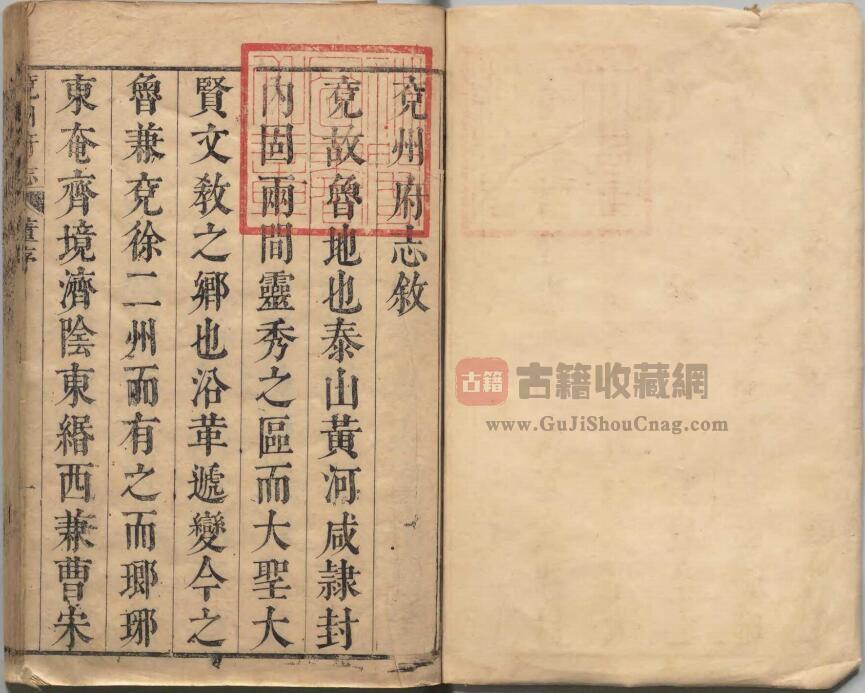 兗州府志敘
兗故魯地也泰山黃河咸隷封
內固兩間靈秀之區而大聖大
賢文教之鄉也沿革遞變今之
魯兼兗徐二州而有之而瑯琊
東奄齊境濟陰東緡西兼曹宋
兗州府志 董序
一
古籍 古籍收藏網
www.GuJiShouCnag.com